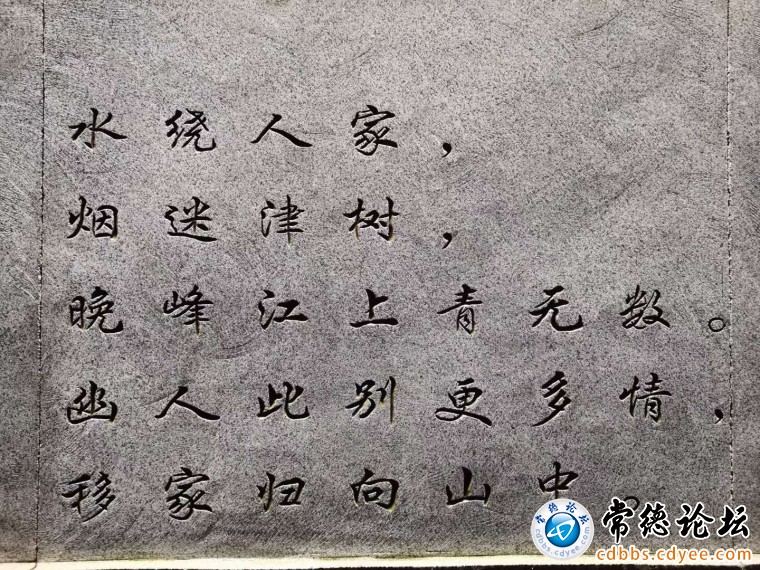 水绕人家，
烟迷津树，
晚峰江上青无数。
幽人此别更多情，
移家归向山中。
常德论坛
常德论坛
cdbbs.cdyee.com